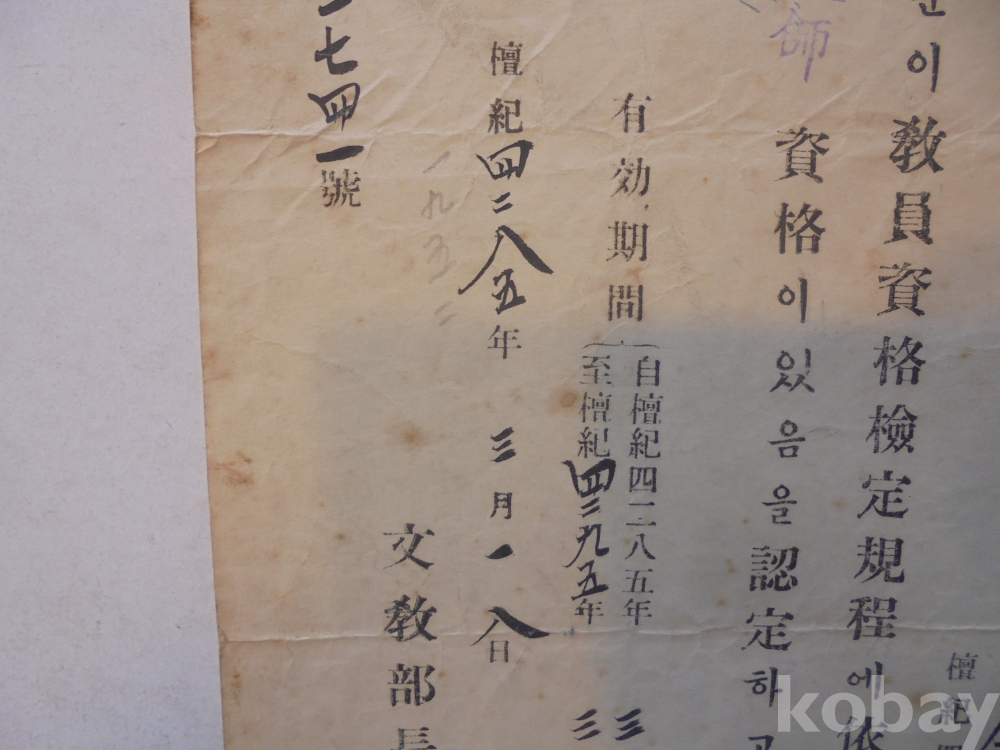 이 敎員資格檢定規程에 依
檀紀
師
資格이 있음을 認定하
有効期間
自檀紀四二八五年
三
至檀紀四二九五年
三
檀紀四二八五年 三月一八日
一九五二
文敎部長
七四一號
kobay